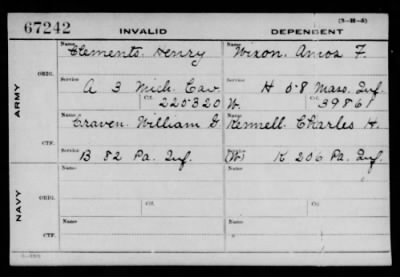 (3-H-5)
67242 INVALID DEPENDENT
Name Name
Clements. Henry Nixon. Amos F.
ORIG.
Service Service
A 3 Mich. Cav. H 58 Mass. Inf.
Ctf. Ctf.
220320 W. 39861
ARMY
Name Name
Craven. William G. Kennell. Charles H.
CTF.
Service Service
B 82 Pa. Inf. (W) K 206 Pa. Inf.
Name Name
ORIG. Ctf. Ctf.
NAVY
Name Name
CTF.